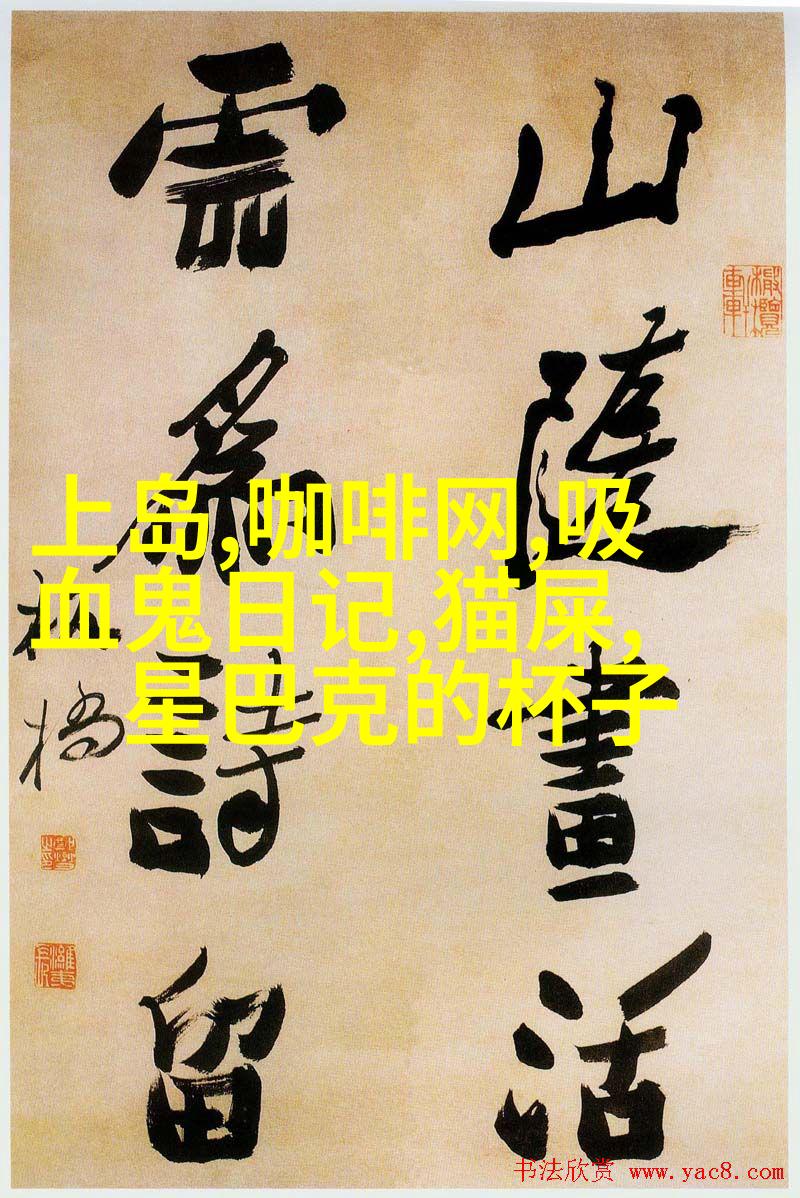 山隨畫活
雲爲詩留
板橋
上岛,咖啡网,吸
血鬼日记,猫屎,
星巴克的杯子
书法欣赏 www.yac8.com